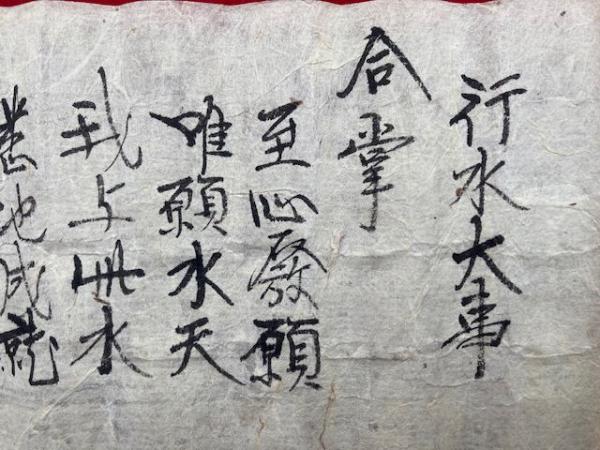 行水大事
合掌
至心發願
唯願水天
我与此水
悉地成就